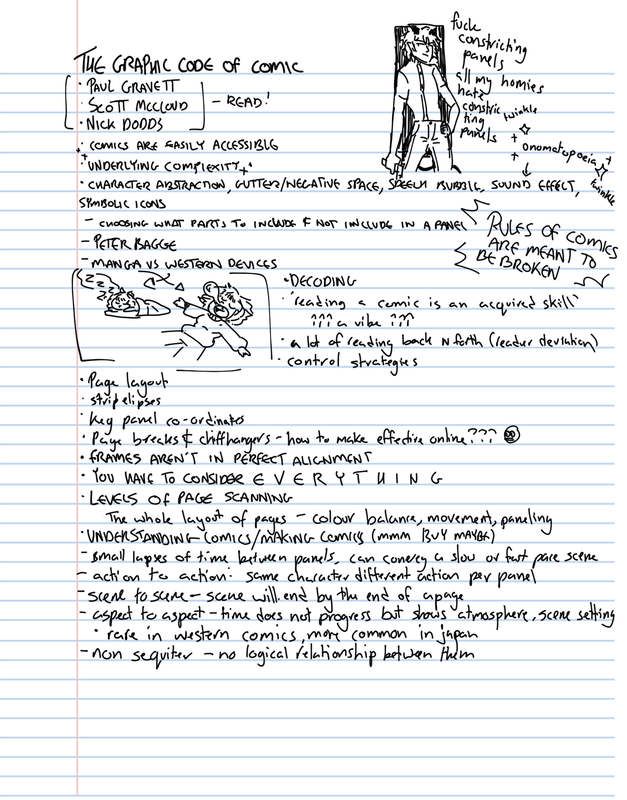 THE GRAPHIC CODE OF COMIC
· PAUL GRAVETT
· SCOTT MCCLOUD
· NICK DODDS
- READ!
fuck
constricting
panels
all my homies
hate
constric
ting
panels
twinkle
onomatopoeia
twinkle
· COMICS ARE EASILY ACCESSIBLE
UNDERLYING COMPLEXITY
· CHARACTER ABSTRACTION, GUTTER/NEGATIVE SPACE, SPEECH BUBBLE, SOUND EFFECT,
SYMBOLIC ICONS
- CHOOSING WHAT PARTS TO INCLUDE & NOT INCLUDE IN A PANEL
- PETER BAGGE
- MANGA VS WESTERN DEVICES
RULES OF COMICS
ARE MEANT TO
BE BROKEN
Z Z Z
· DECODING
· 'reading a comic is an acquired skill'
??? a vibe ???
· a lot of reading back N forth (reader deviation)
· control strategies
· Page layout
· strip elipses
· key panel co-ordinates
· Page breaks & cliffhangers - how to make effective online???
· FRAMES AREN'T IN PERFECT ALIGNMENT
· YOU HAVE TO CONSIDER E V E R Y T H I N G
· LEVELS OF PAGE SCANNING
The whole layout of pages - colour balance, movement, paneling
· UNDERSTANDING COMICS/MAKING COMICS (MMM BUY MAYBE)
- small lapses of time between panels, can convey a slow or fast pace scene
- action to action: same character different action per panel
- scene to scene - scene will end by the end of a page
- aspect to aspect - time does not progress but shows atmosphere, scene setting
· rare in western comics, more common in japan
- non sequiter - no logical relationship between them